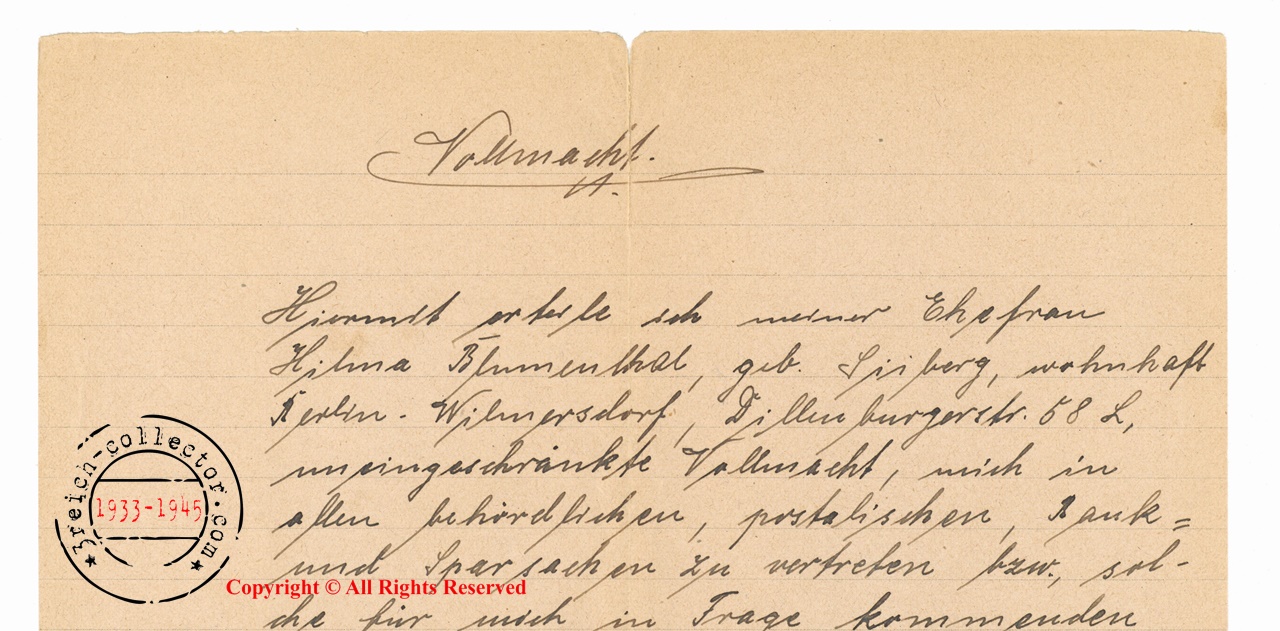 Vollmacht.
Hiermit erteile ich meiner Ehefrau
Hilma Blumenthal, geb. wohnhaft
Berlin - Wilmersdorf, Dillenburgerstr. 58
uneingeschränkte Vollmacht, mich in
allen behördlichen, postalischen, Bank=
und Sparsachen zu vertreten bzw., sol-
che für mich in Frage kommenden
3reich-collector.com
1933-1945
Copyright © All Rights Reserved